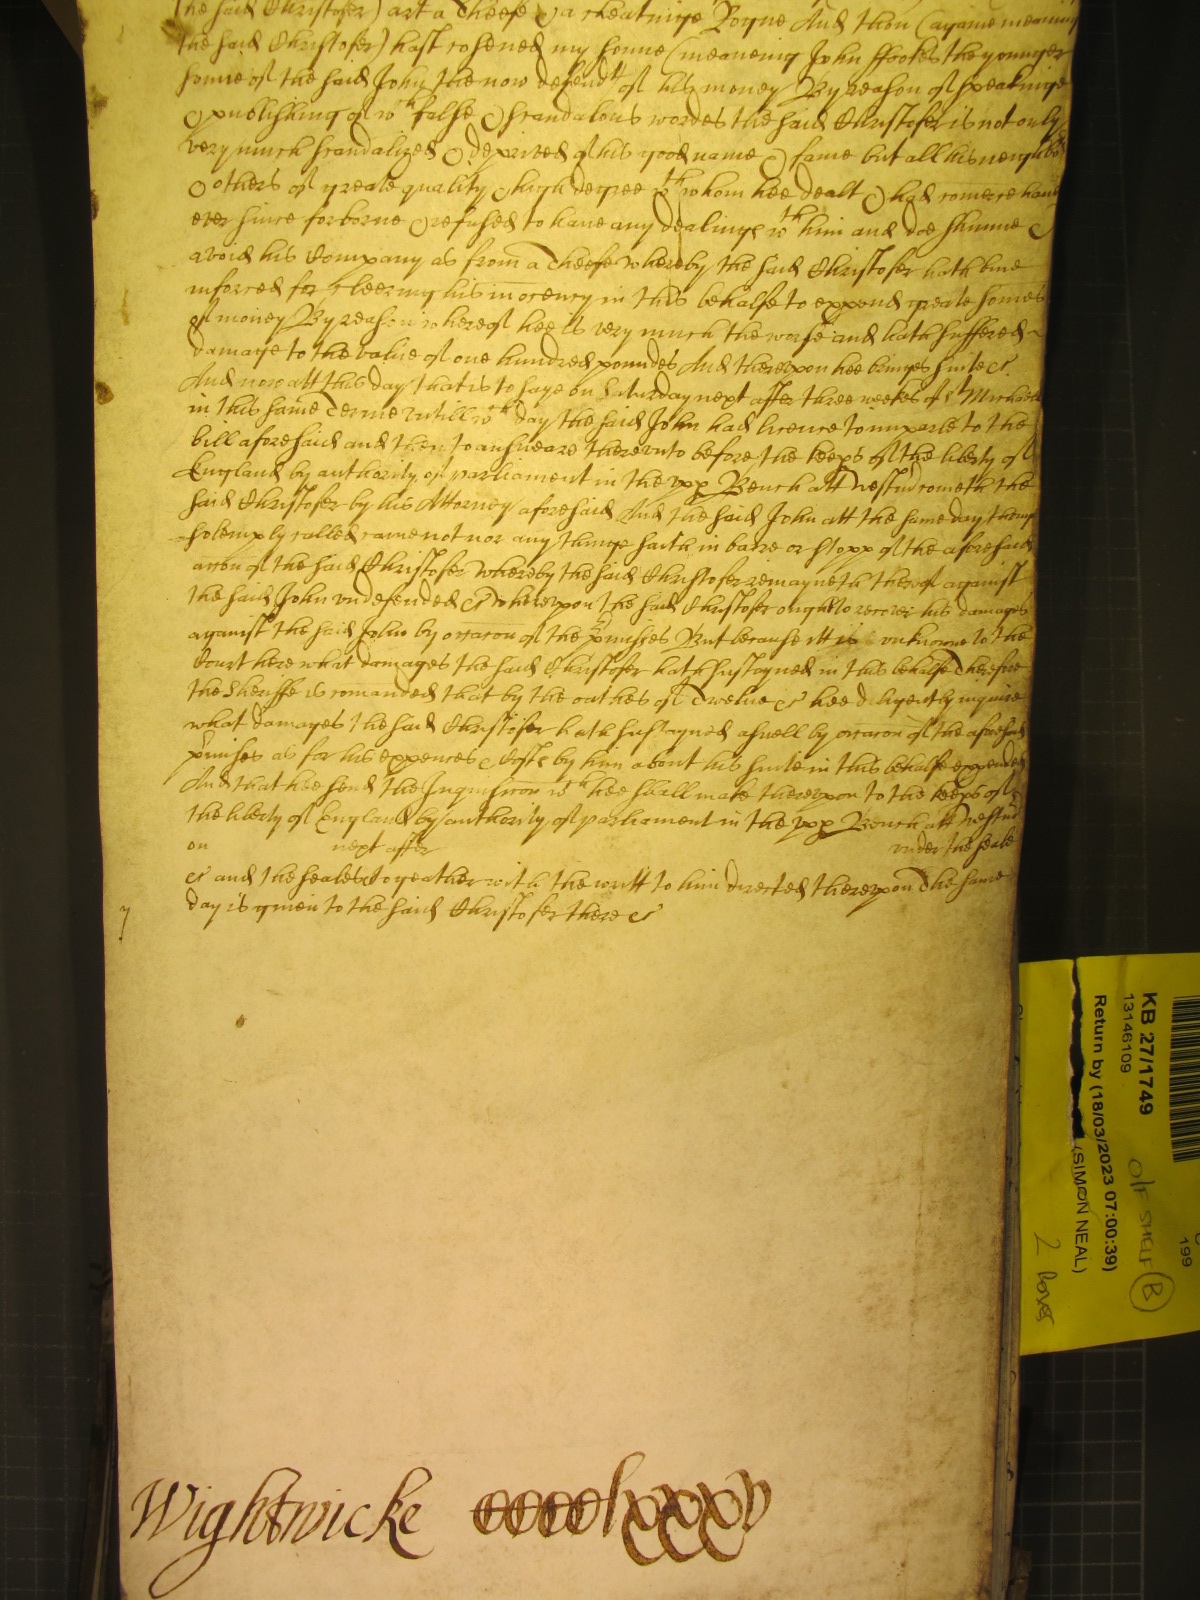 the said Christofer) art a Theefe & a cheatinge Rogue And thou (againe meaning
the said Christofer) hast cosened my sonne (meaneing John ffootes the younger
sonne of the said John the now defendt of his money By reason of speakinge
& publishing of wch false & scandalous wordes the said Christofer is not only
very much scandalized & deprived of his good name & fame but all his neighbo
& others of greate quality & high degree wth whom hee dealt & had comerce have
ever since forborne & refused to have any dealings wth him and doe shunne &
avoid his Company as from a Theefe whereby the said Christofer hath bine
inforced for cleering his inocency in this behalfe to expend greate somes
of money By reason whereof hee is very much the worse and hath suffered
damage to the value of one hundred poundes And thereupon hee bringes suite &c
And now att this day that is to saye on Saturday next after three weekes of St Michaell
in this same Terme untill wch day the said John had licence to imparle to the
bill aforesaid and then to answeare thereunto before the keeps of the liberty of
England by authority of parliament in the upp Bench att Westm cometh the
said Christofer by his Attorney aforesaid And the said John att the same day though
solemply called came not nor any thinge saith in barre or stopp of the aforesaid
accon of the said Christofer whereby the said Christofer remayneth therof against
the said John undefended & whereupon the said Christofer ought to recover his damages
against the said John by occacon of the pmisses But because itt is unknowne to the
Court here what damages the said Christofer hath sustayned in this behalfe Therefore
the Sheriffe is comanded that by the oathes of Twelve &c hee diligently inquire
what damages the said Christofer hath sustayned aswell by occacon of the aforesaid
pmisses as for his expences & costs by him about his suite in this behalfe expended
And that hee send the Inquisicon wch hee shall make thereupon to the keeps of
the liberty of England by authority of parliament in the upp Bench att Westm
on next after under the seale
&c and the seales &c togeather with the writt to him directed thereupon The same
day is given to the said Christofer there &c
Wightwicke cccclxxxv
KB 27/1749
13146109
Return by (18/03/2023 07:00:39)
(SIMON NEAL)
199
O/F SHELF B
2 boxes